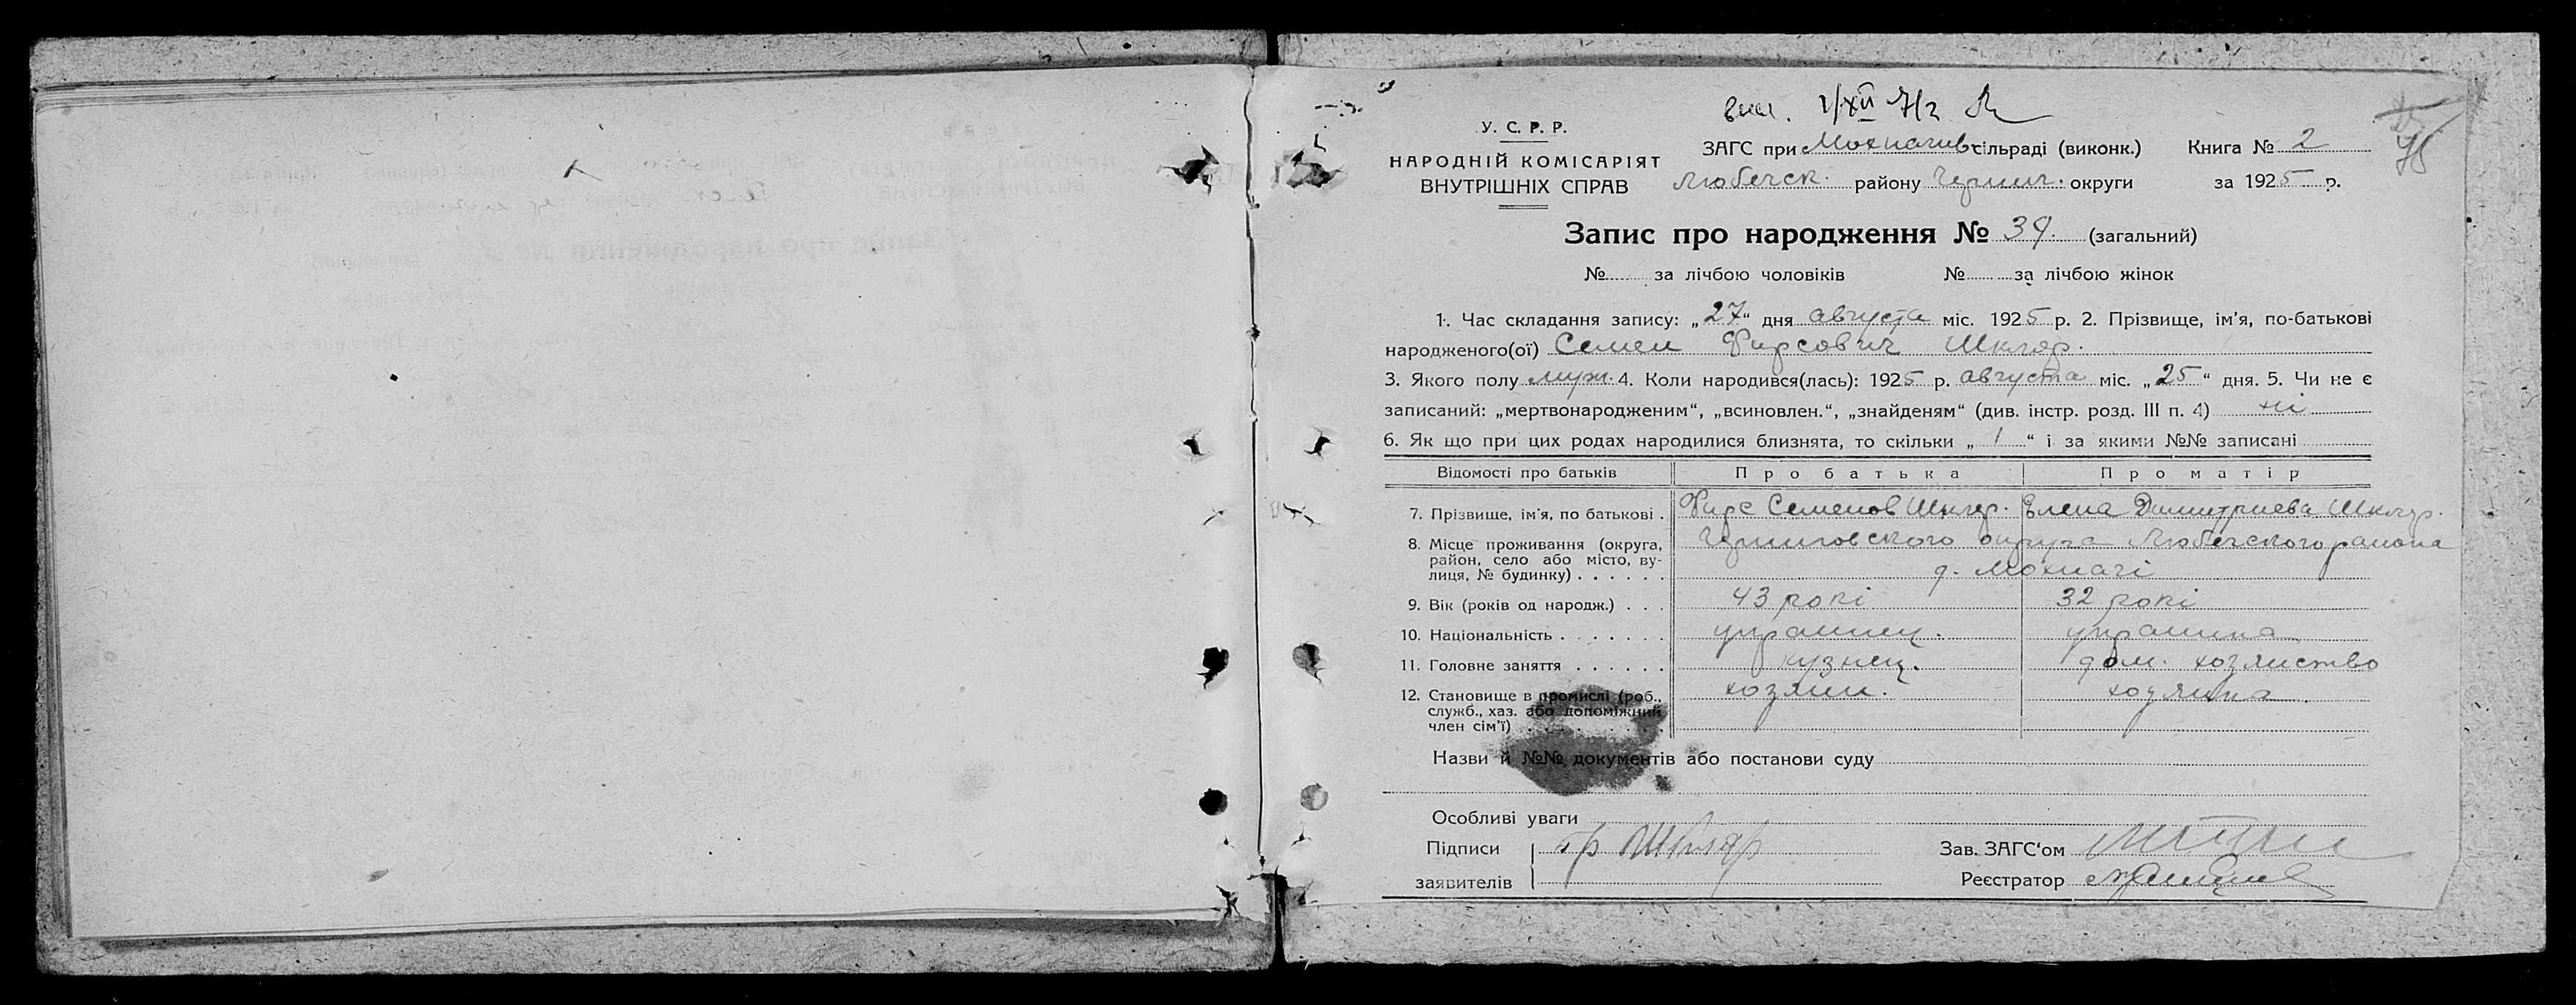 У. С. Р. Р.
НАРОДНІЙ КОМІСАРІЯТ
ВНУТРІШНІХ СПРАВ
ЗАГС при Мохначив сільраді (виконк.) Книга № 2
Любечск. району Черниг. округи за 1925 р.
Запис про народження № 39. (загальний)
№ за лічбою чоловіків № за лічбою жінок
1. Час складання запису: „27“ дня августа міс. 1925 р. 2. Прізвище, ім'я, по-батькові
народженого(ої) Семен Фирсович Шкляр.
3. Якого полу муж. 4. Коли народився(лась): 1925 р. августа міс. „25“ дня. 5. Чи не є
записаний: „мертвонародженим“, „всиновлен.“, „знайденям“ (див. інстр. розд. III п. 4) ні
6. Як що при цих родах народилися близнята, то скільки „1“ і за якими №№ записані
Відомості про батьків Про батька Про матір
7. Прізвище, ім'я, по батькові . Фирс Семенов Шкляр. Елена Димитриева Шкляр.
8. Місце проживання (округа, Черниговского округа Любечского района
район, село або місто, ву-
лиця, № будинку) . . . . . . д. Мохначі
9. Вік (років од народж.) . . . 43 рокі 32 рокі
10. Національність . . . . . . . украинец. украинка
11. Головне заняття . . . . . . кузнец. дом. хозяиство
12. Становище в промислі (роб., хозяин. хозяика.
служб., хаз. або допоміжний
член сім'ї)
Назви й №№ документів або постанови суду
Особливі уваги
Підписи гр Шкляр Зав. ЗАГС'ом
заявителів Реєстратор